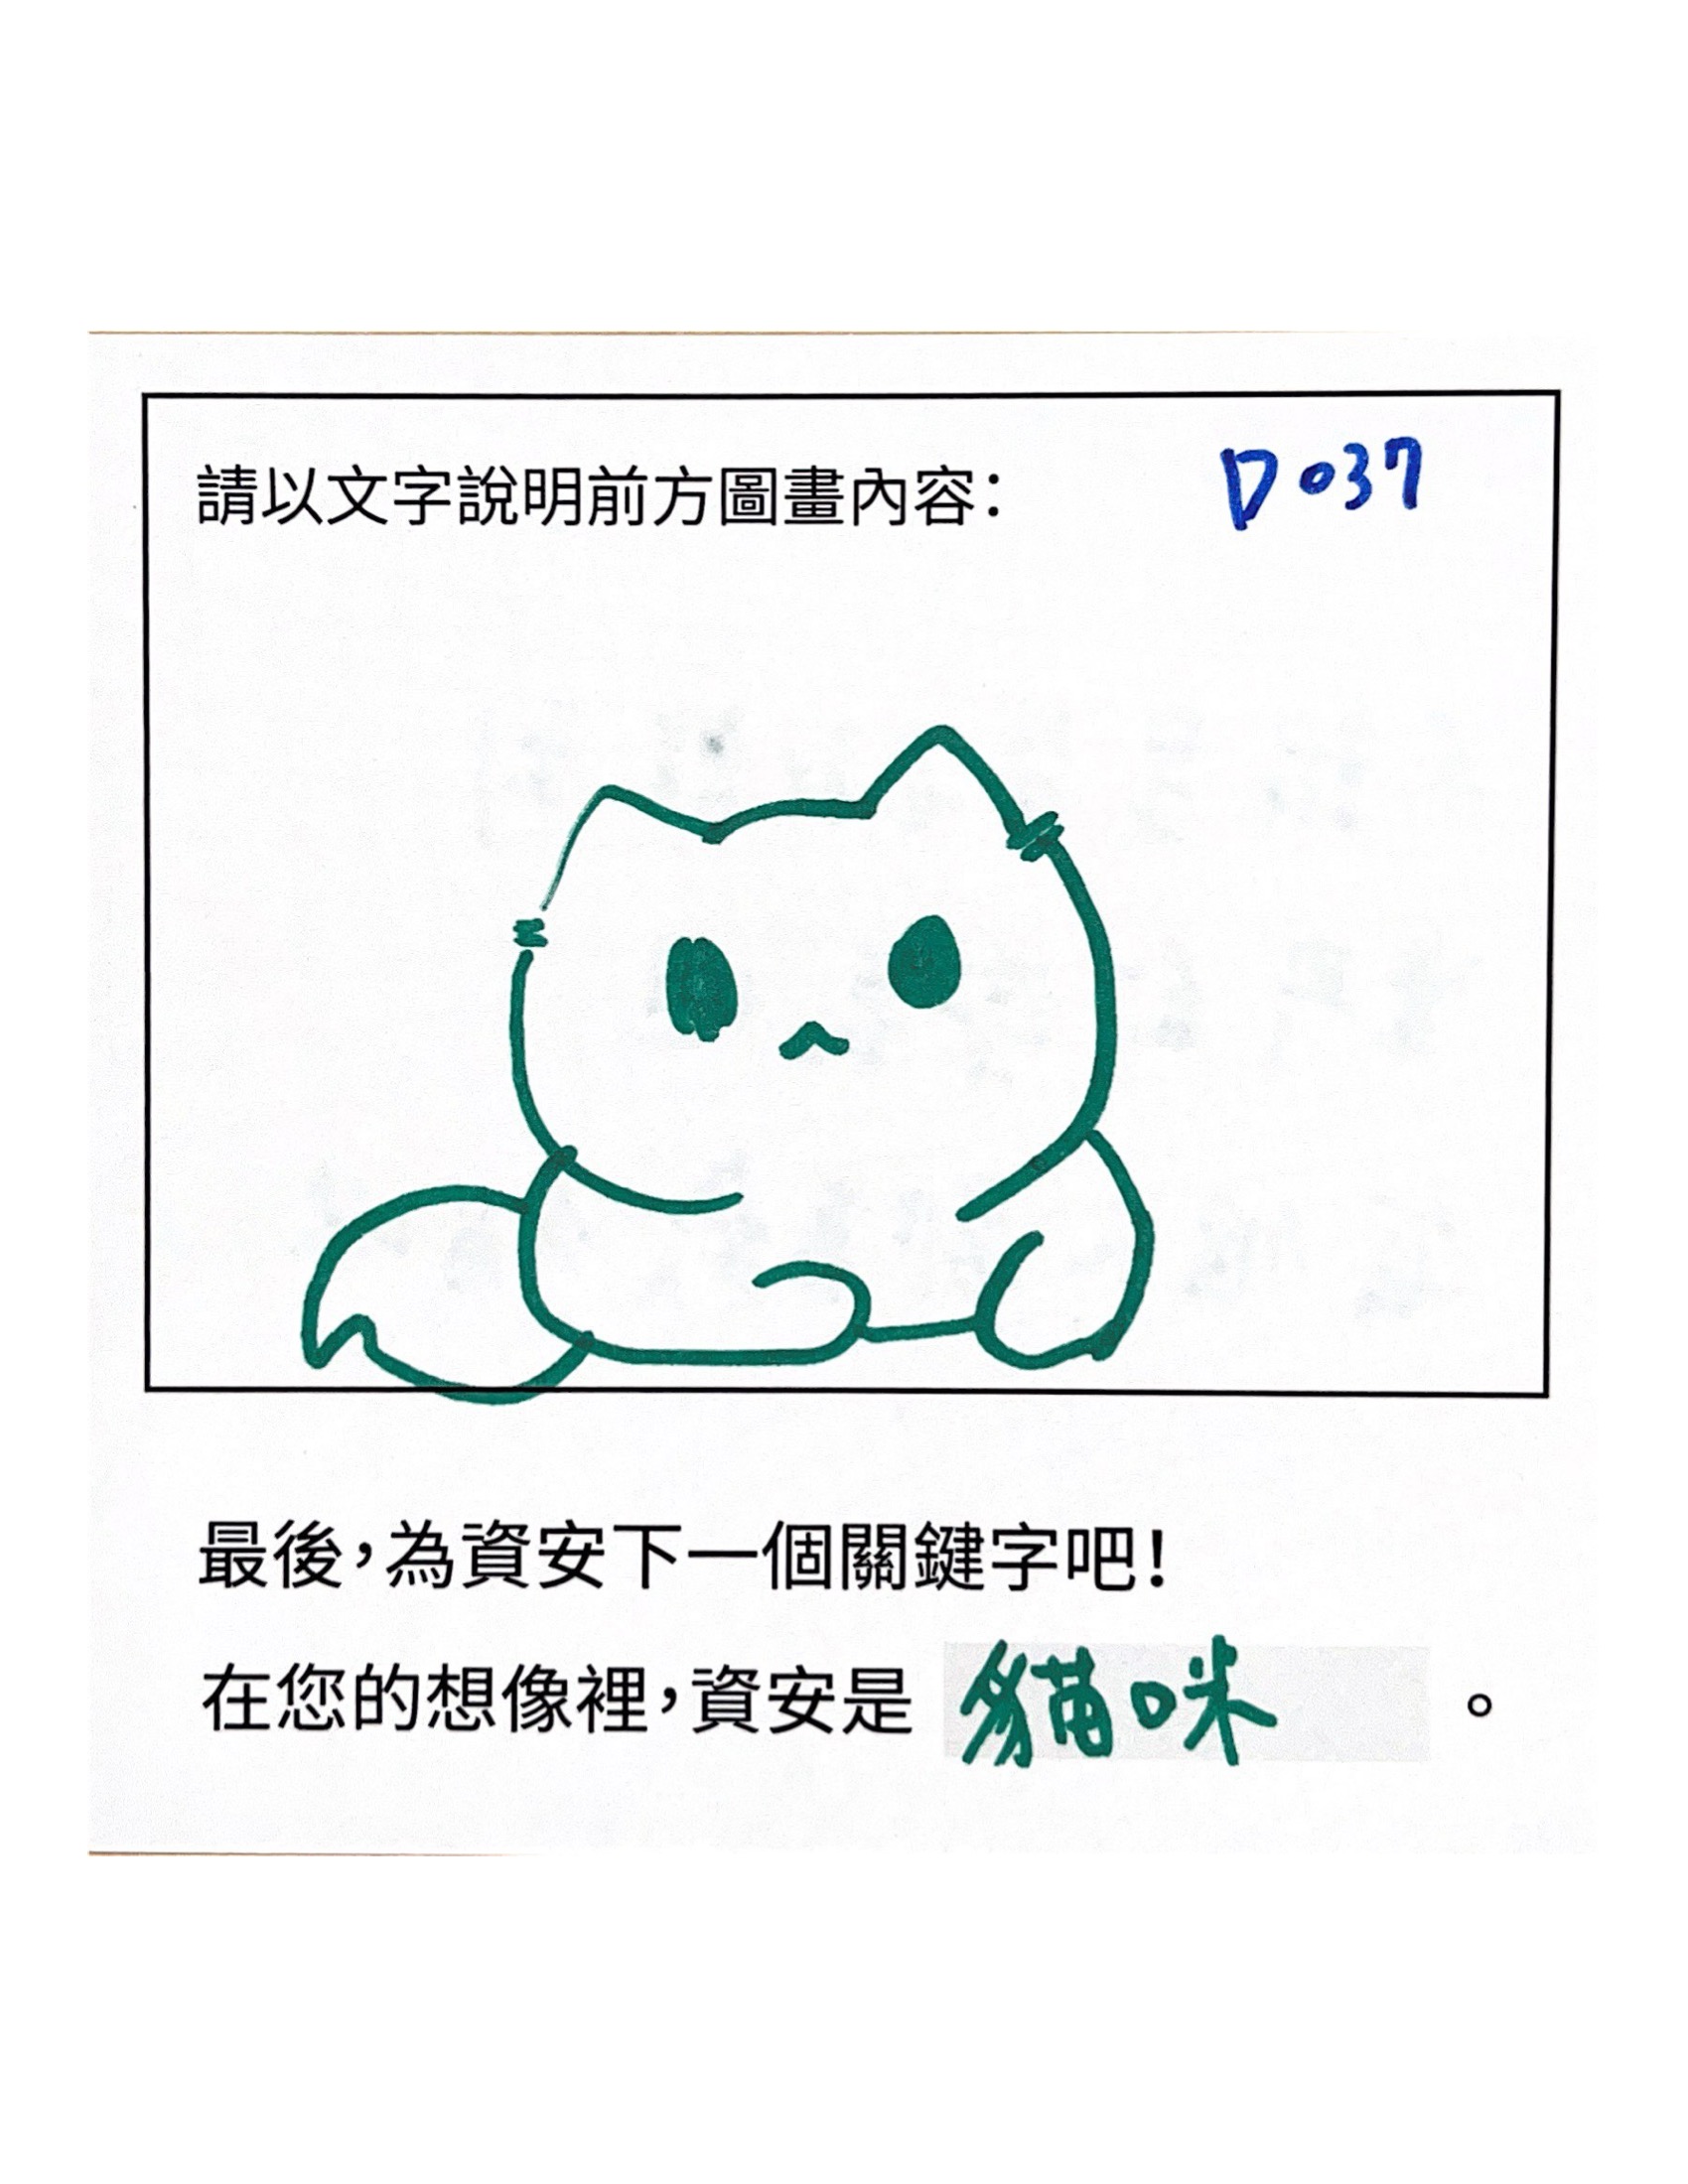 請以文字說明前方圖畫內容： D037
最後，為資安下一個關鍵字吧！
在您的想像裡，資安是 貓咪 。